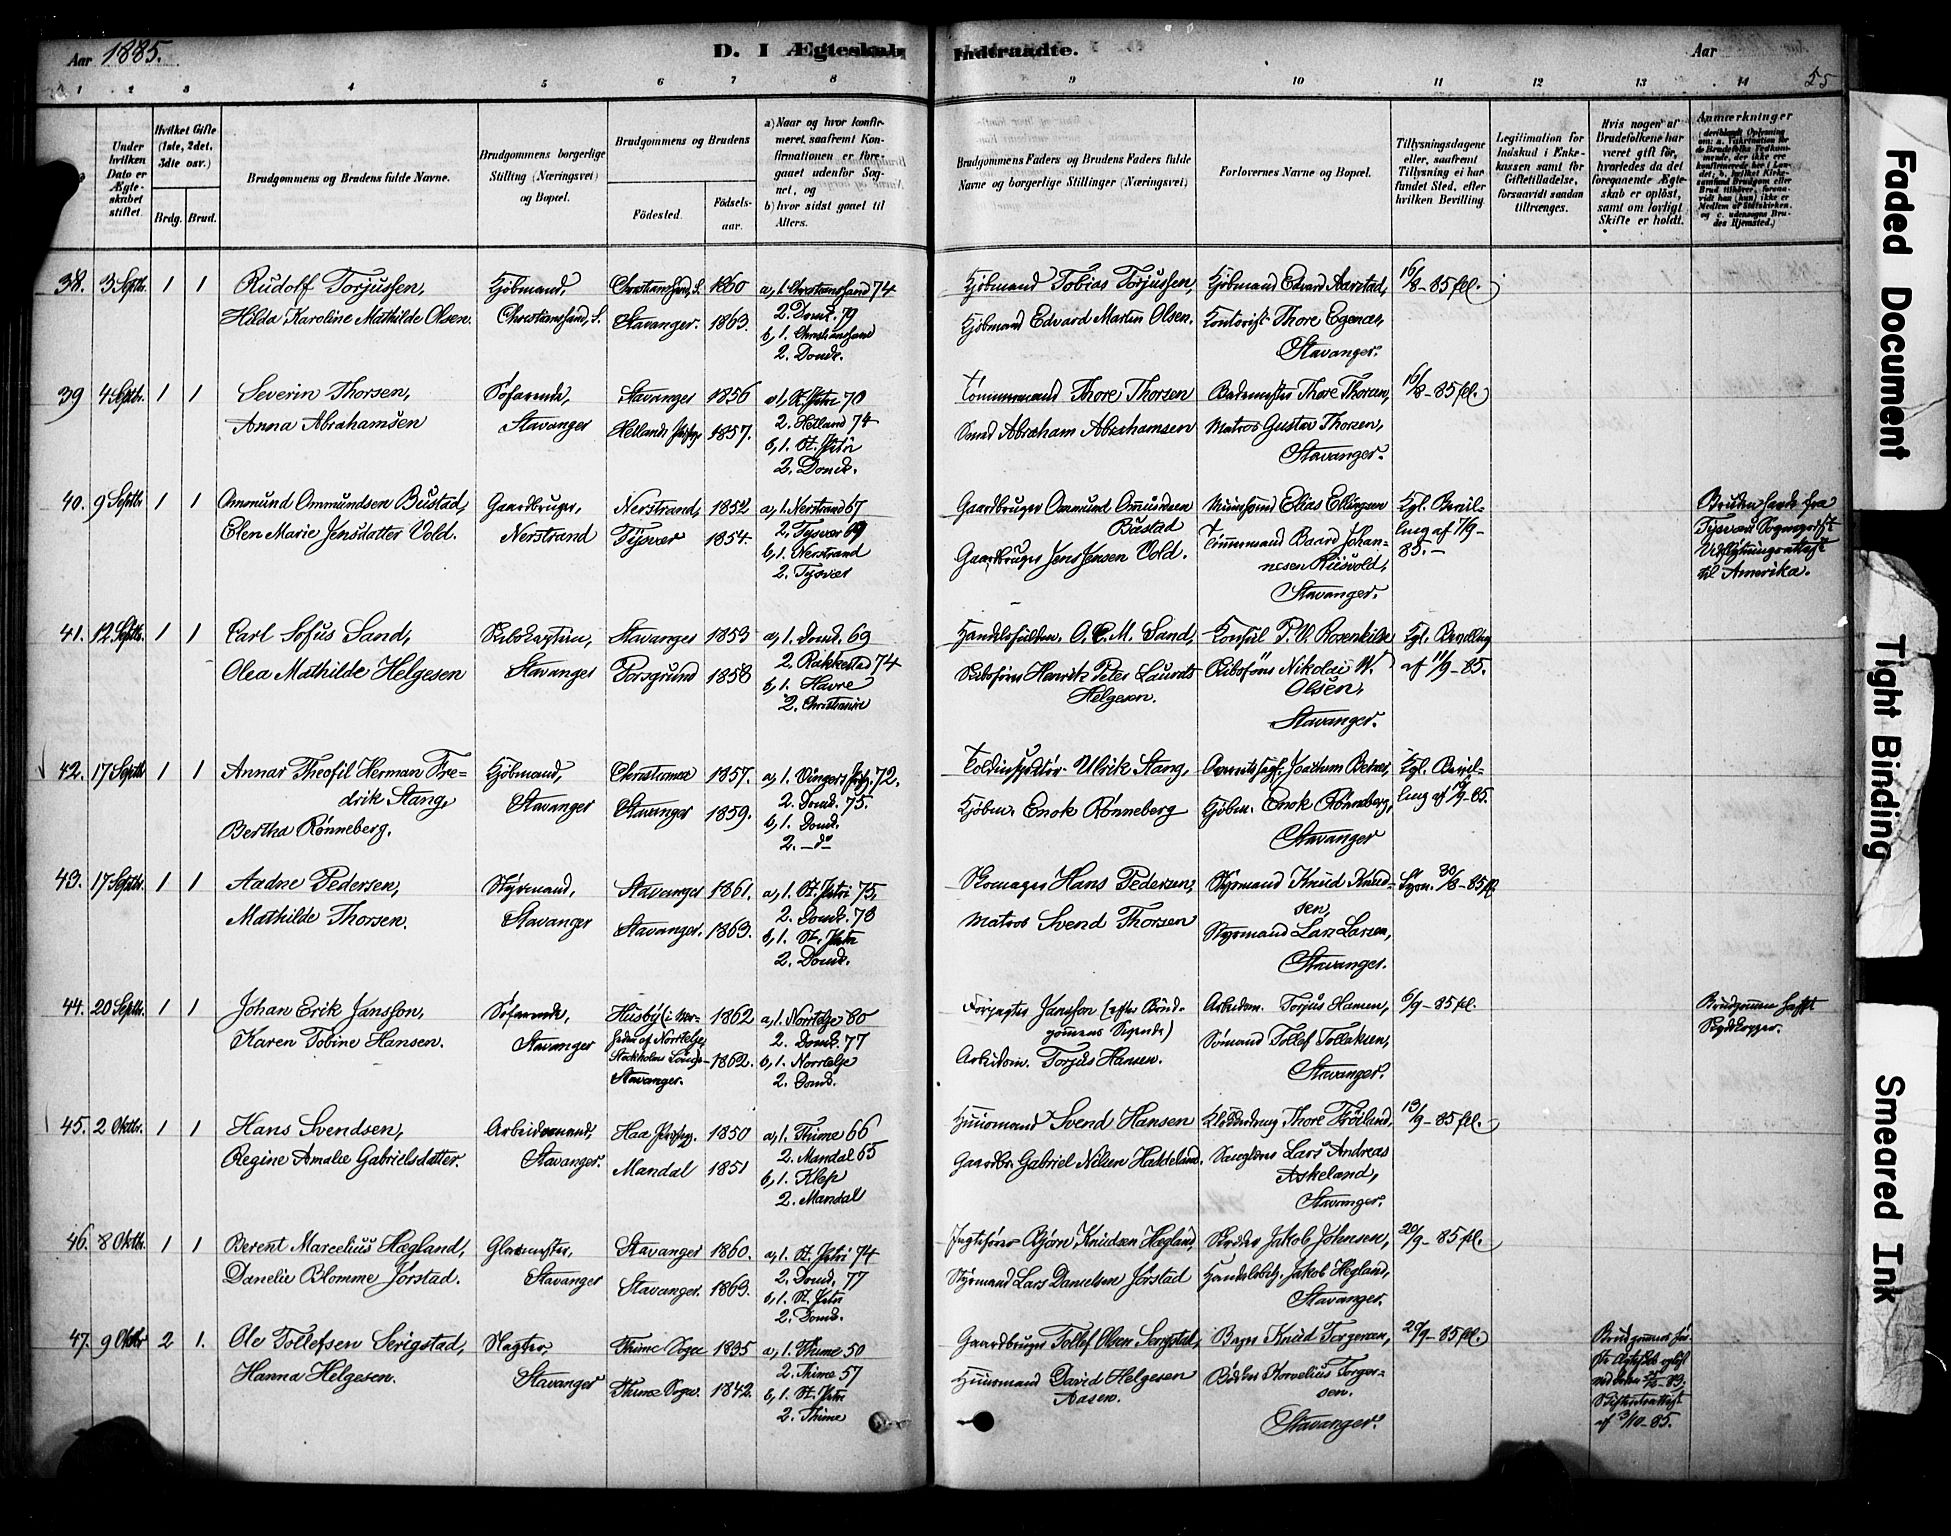 Aar 1885.
D. I Ægteskab Indtraadte.
Aar
55
1 2 3 4 5 6 7 8 9 10 11 12 13 14
Under hvilken Dato er Ægteskabet stiftet.
Hvilket Gifte (1ste, 2det, 3die osv.)
Brdg. Brud.
Brudgommens og Brudens fulde Navne.
Brudgommens borgerlige Stilling (Næringsvei) og Bopæl.
Brudgommens og Brudens
Fødested.
Fødselsaar.
a) Naar og hvor konfirmeret, saafremt Konfirmationen er foregaaet udenfor Sognet, og
b) hvor sidst gaaet til Alters.
Brudgommens Faders og Brudens Faders fulde Navne og borgerlige Stillinger (Næringsvei)
Forlovernes Navne og Bopæl.
Tillysningsdagene eller, saafremt Tillysning ei har fundet Sted, efter hvilken Bevilling.
Legitimation for Indskud i Enkekassen samt for Giftetilladelse, forsaavidt saadan tiltrænges.
Hvis nogen af Brudefolkene har været gift før, hvorledes da det foregaaende Ægteskab er opløst, samt om lovligt Skifte er holdt.
Anmærkninger
38. 3 Septbr. 1 1 Rudolf Torjussen, Kjøbmand, Christianssand, S. 1860 a, 1. Christianssand 74 Kjøbmand Tobias Torjussen, Kjøbmand Edvard Aarstad, 16/8-85 fl.
Hilda Karoline Mathilde Olsen. Christianssand, S. Stavanger. 1863. 2. Domk. 79 Kjøbmand Edvard Martin Olsen. Kontorist Thore Egenæs,
b, 1. Christianssand Stavanger.
2. Domk.
39 4 Septbr. 1 1 Severin Thorsen, Søfarende, Stavanger 1856 a, 1. St. Petri 70 Tømmermand Thore Thorsen Bademester Thore Thorsen, 16/8-85 fl.
Anna Abrahamsen Stavanger Hellands Præstegj. 1857. 2. Helland 74 Smed Abraham Abrahamsen Matros Gustav Thorsen,
b, 1. St. Petri Stavanger.
2. Domk.
40. 9 Septbr. 1 1 Ommund Ommundsen Bustad, Gaardbruger, Nerstrand, 1852 a, 1. Nerstrand 67 Gaardbruger Ommund Ommundsen Bustad Elias Ellingsen Kgl. Bevilling af 7/9-85.
Elen Marie Jensdatter Vold. Nerstrand Tysvær 1854. 2. Tysvær 69 Gaardbruger Jens Jensen Vold. Tømmermand Baard Johannesen Riisvold,
b, 1. Nerstrand Stavanger.
2. Tysvær til Amerika.
41. 12 Septbr. 1 1 Carl Sofus Sand, Skibskaptein, Stavanger 1853 a, 1. Domk. 69 O. C. M. Sand, Konsul P. V. Rosenkilde Kgl. Bevilling af 11/9-85.
Olea Mathilde Helgesen Stavanger Porsgrund 1858 2. Rakkestad 74 Skibsfører Henrik Peter Laurits Helgesen. Skibsfører Nikolai W. Olsen,
b, 1. Havre Stavanger.
2. Christiania
42. 17 Septbr. 1 1 Annar Theofil Herman Fredrik Stang, Kjøbmand, Christiania 1857. a, 1. Vinger Præstegj. 72. Toldinspektør Ulrik Stang, Joachim Betzer, Kgl. Bevilling af /9-85.
Bertha Rønneberg. Stavanger Stavanger 1859. 2. Domk. 75. Kjøbm. Enok Rønneberg Kjøbm. Enok Rønneberg,
b, 1. Domk. Stavanger
2. - do
43. 17 Septbr. 1 1 Aadne Pedersen, Styrmand, Stavanger 1861. a, 1. St. Petri 75, Skomager Hans Pedersen, Styrmand Knud Knudsen, 30/8-85 fl
Mathilde Thorsen. Stavanger Stavanger. 1863. 2. Domk. 78 Matros Svend Thorsen Styrmand Lars Larsen,
b, 1. St. Petri Stavanger.
2. Domk.
44. 20 Septbr. 1 1 Johan Erik Jansson, Søfarende, Husby (i Nærheden af Norrtelge, Stockholms 1862 a, 1. Norrtelge 80 Forpagter Jansson (efter Brudgommens Sigende) Arbeidsm. Torjus Hansen, 6/9-85 fl. Brudgommen havt
Karen Tobine Hansen. Stavanger Stavanger. 1862. 2. Domk. 77 Arbeidsm. Torjus Hansen. Sømand Tollef Tollaksen,
b, 1. Norrtelge Stavanger.
2. Domk.
45. 2 Oktbr. 1 1 Hans Svendsen, Arbeidsmand, Haa Præstegj. 1850 a, 1. Thime 66 Huusmand Svend Hansen Thore Frøiland, 13/9-85 fl.
Regine Amalie Gabrielsdatter. Stavanger. Mandal 1851 2. Mandal 65 Gaardbr. Gabriel Nilsen Haldeland. Lars Andreas Askeland,
b, 1. Klep Stavanger.
2. Mandal
46. 8 Oktbr. 1 1 Berent Marcelius Hægland, Glasmester, Stavanger 1860. a, 1. St. Petri 74 Jagtefører Bjørn Knudsen Hægland, Jakob Johnsen, 20/9-85 fl.
Danelie Blomme Jørstad. Stavanger Stavanger. 1863. 2. Domk. 77 Styrmand Lars Danielsen Jørstad Handelsbetj. Jakob Hegland,
b, 1. St. Petri Stavanger.
2. Domk.
47. 9 Oktbr 2 1. Ole Tollefsen Serigstad, Slagter, Thime Sogn 1835 a, 1. Thime 50 Gaardbruger Tollef Olsen Serigstad, Bager Knud Torgersen, 20/9-85 fl.
Hanna Helgesen. Stavanger Thime Sogn. 1842. 2. Thime 57 Huusmand David Helgesen Aasen. Bødker Kornelius Torgersen.
b, 1. St. Petri Stavanger.
2. Thime af 3/10-85.
Faded Document
Tight Binding
Smeared Ink